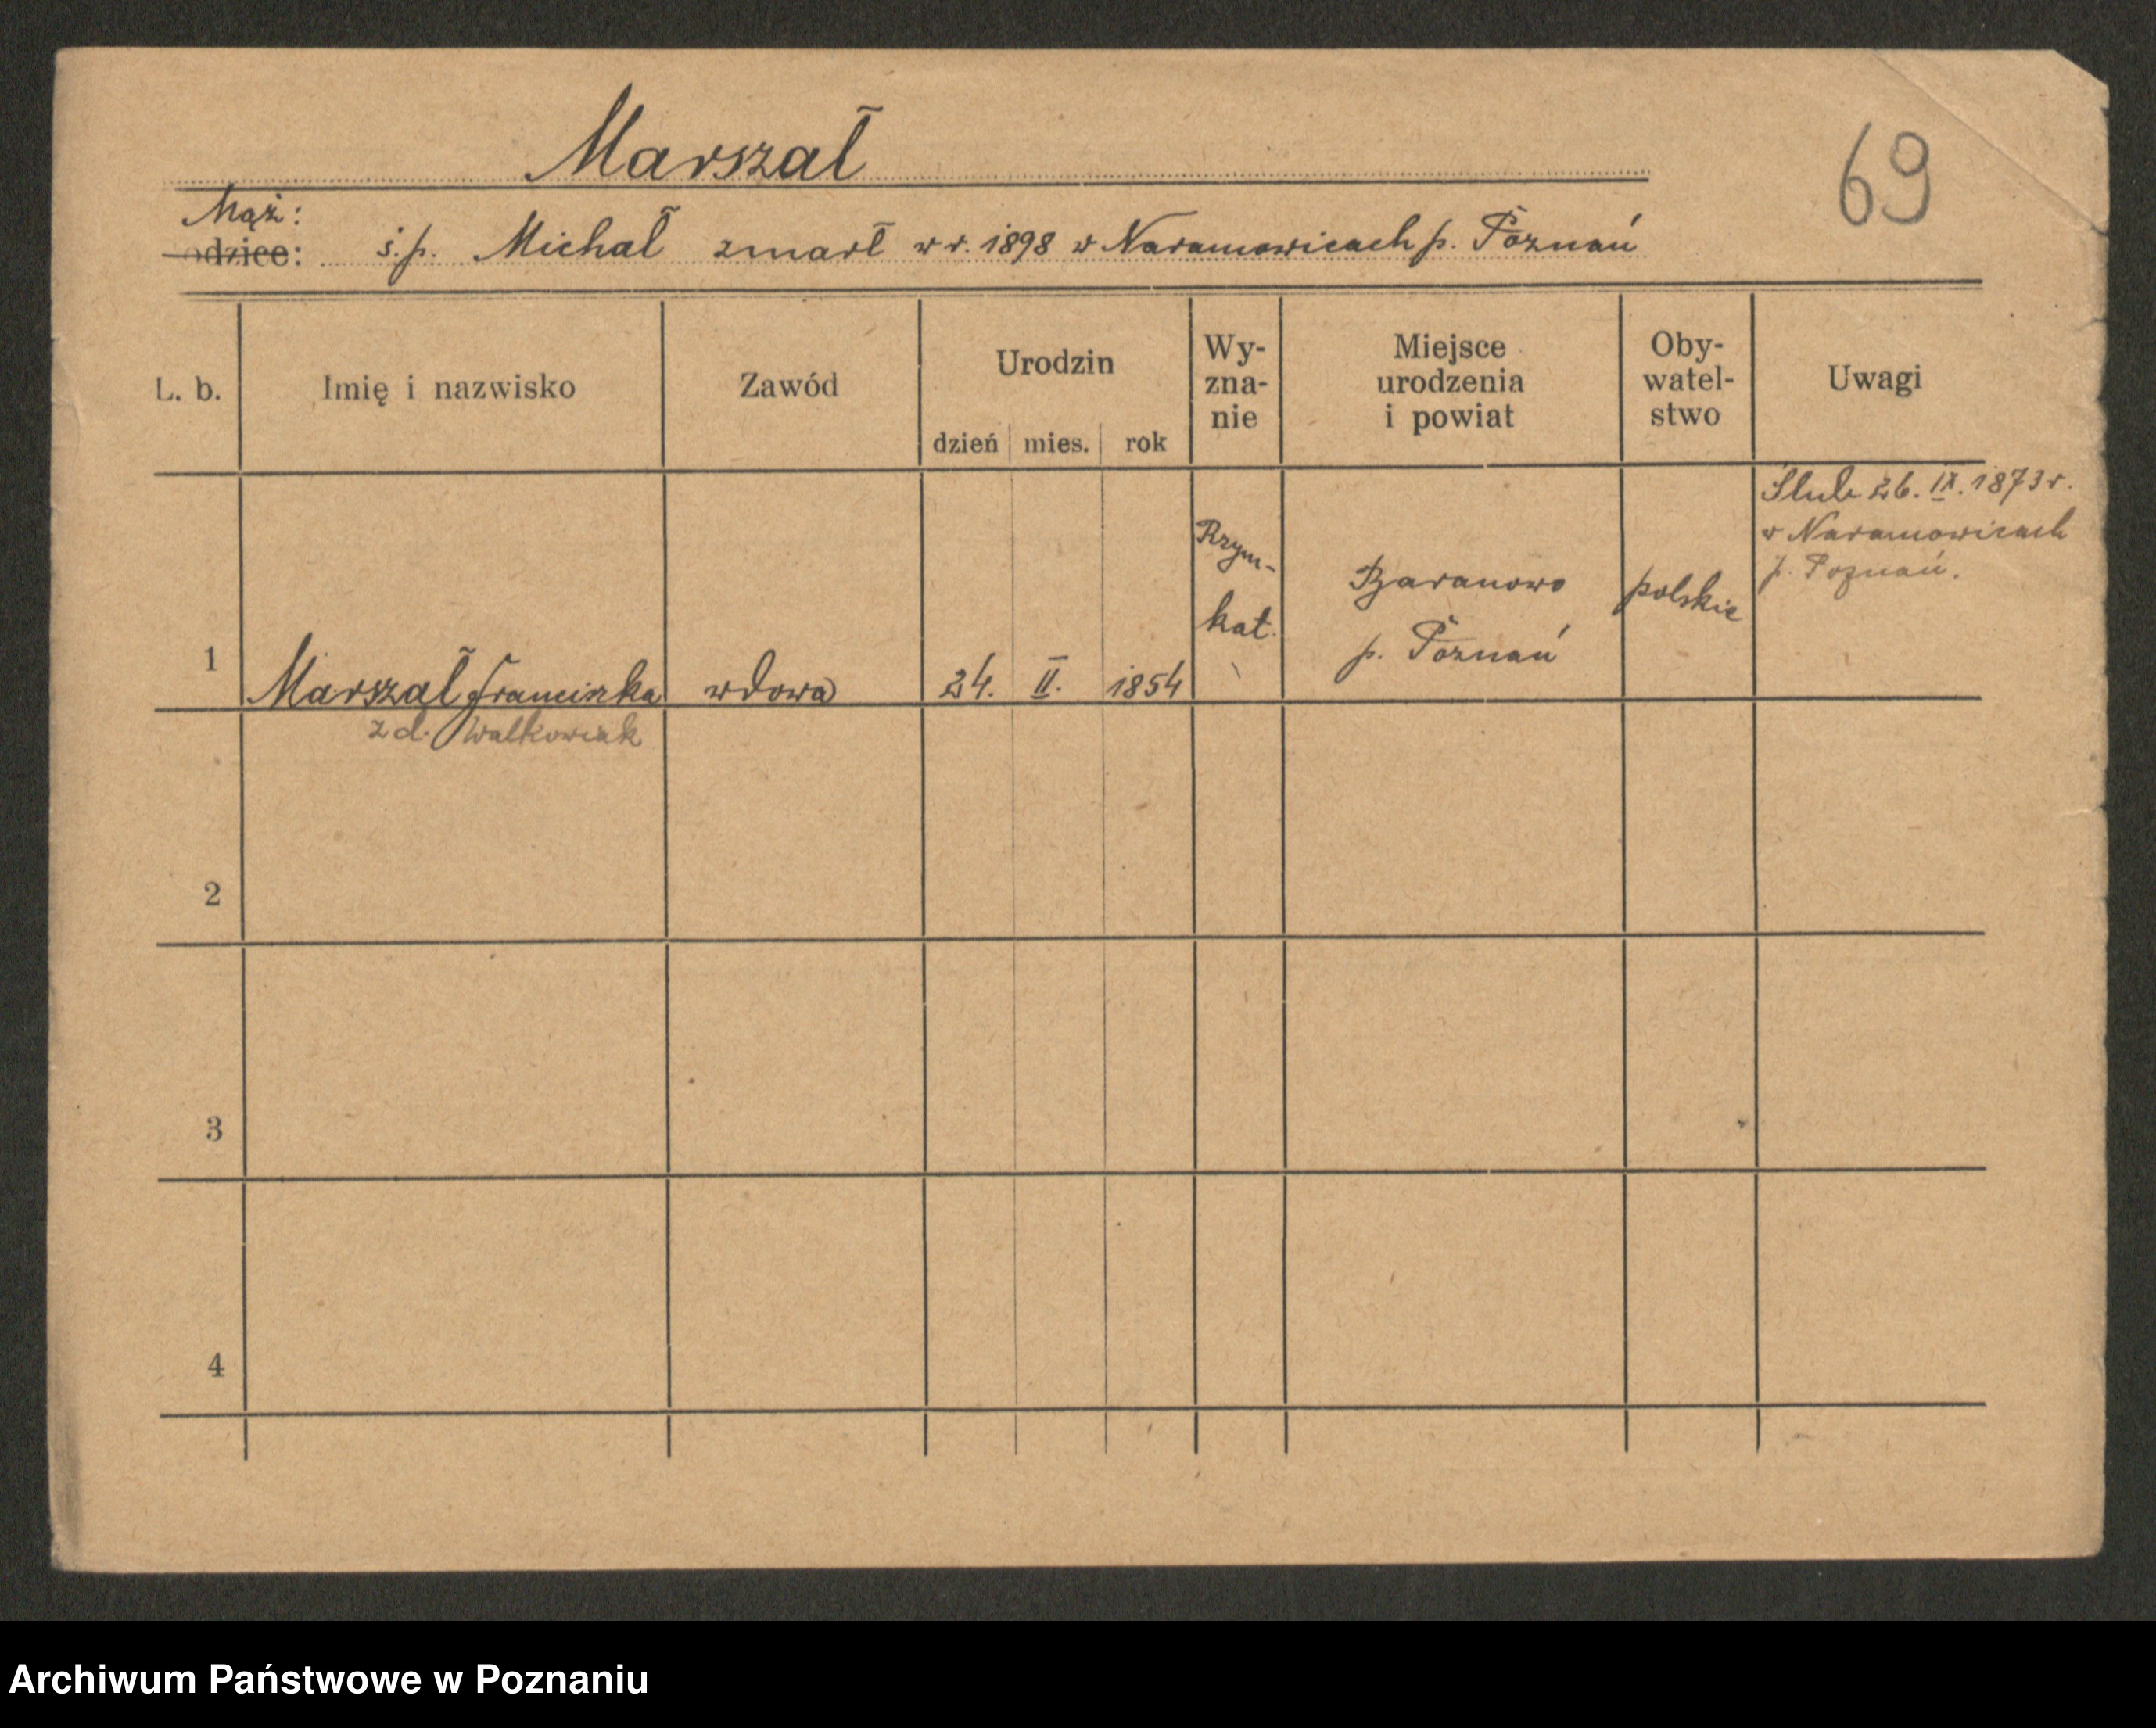 Marszał
69
Mąż:
odzice: ś.p. Michał zmarł w r. 1898 w Naramowicach p. Poznań
L. b.
Imię i nazwisko
Zawód
Urodzin
dzień mies. rok
Wy-
zna-
nie
Miejsce
urodzenia
i powiat
Oby-
watel-
stwo
Uwagi
1
Marszał Franciszka
z d. Walkowiak
wdowa
24. II. 1854
Rzym-
kat.
Baranowo
p. Poznań
polskie
Ślub 26. IX. 1873 r.
w Naramowicach
p. Poznań.
2
3
4
Archiwum Państwowe w Poznaniu